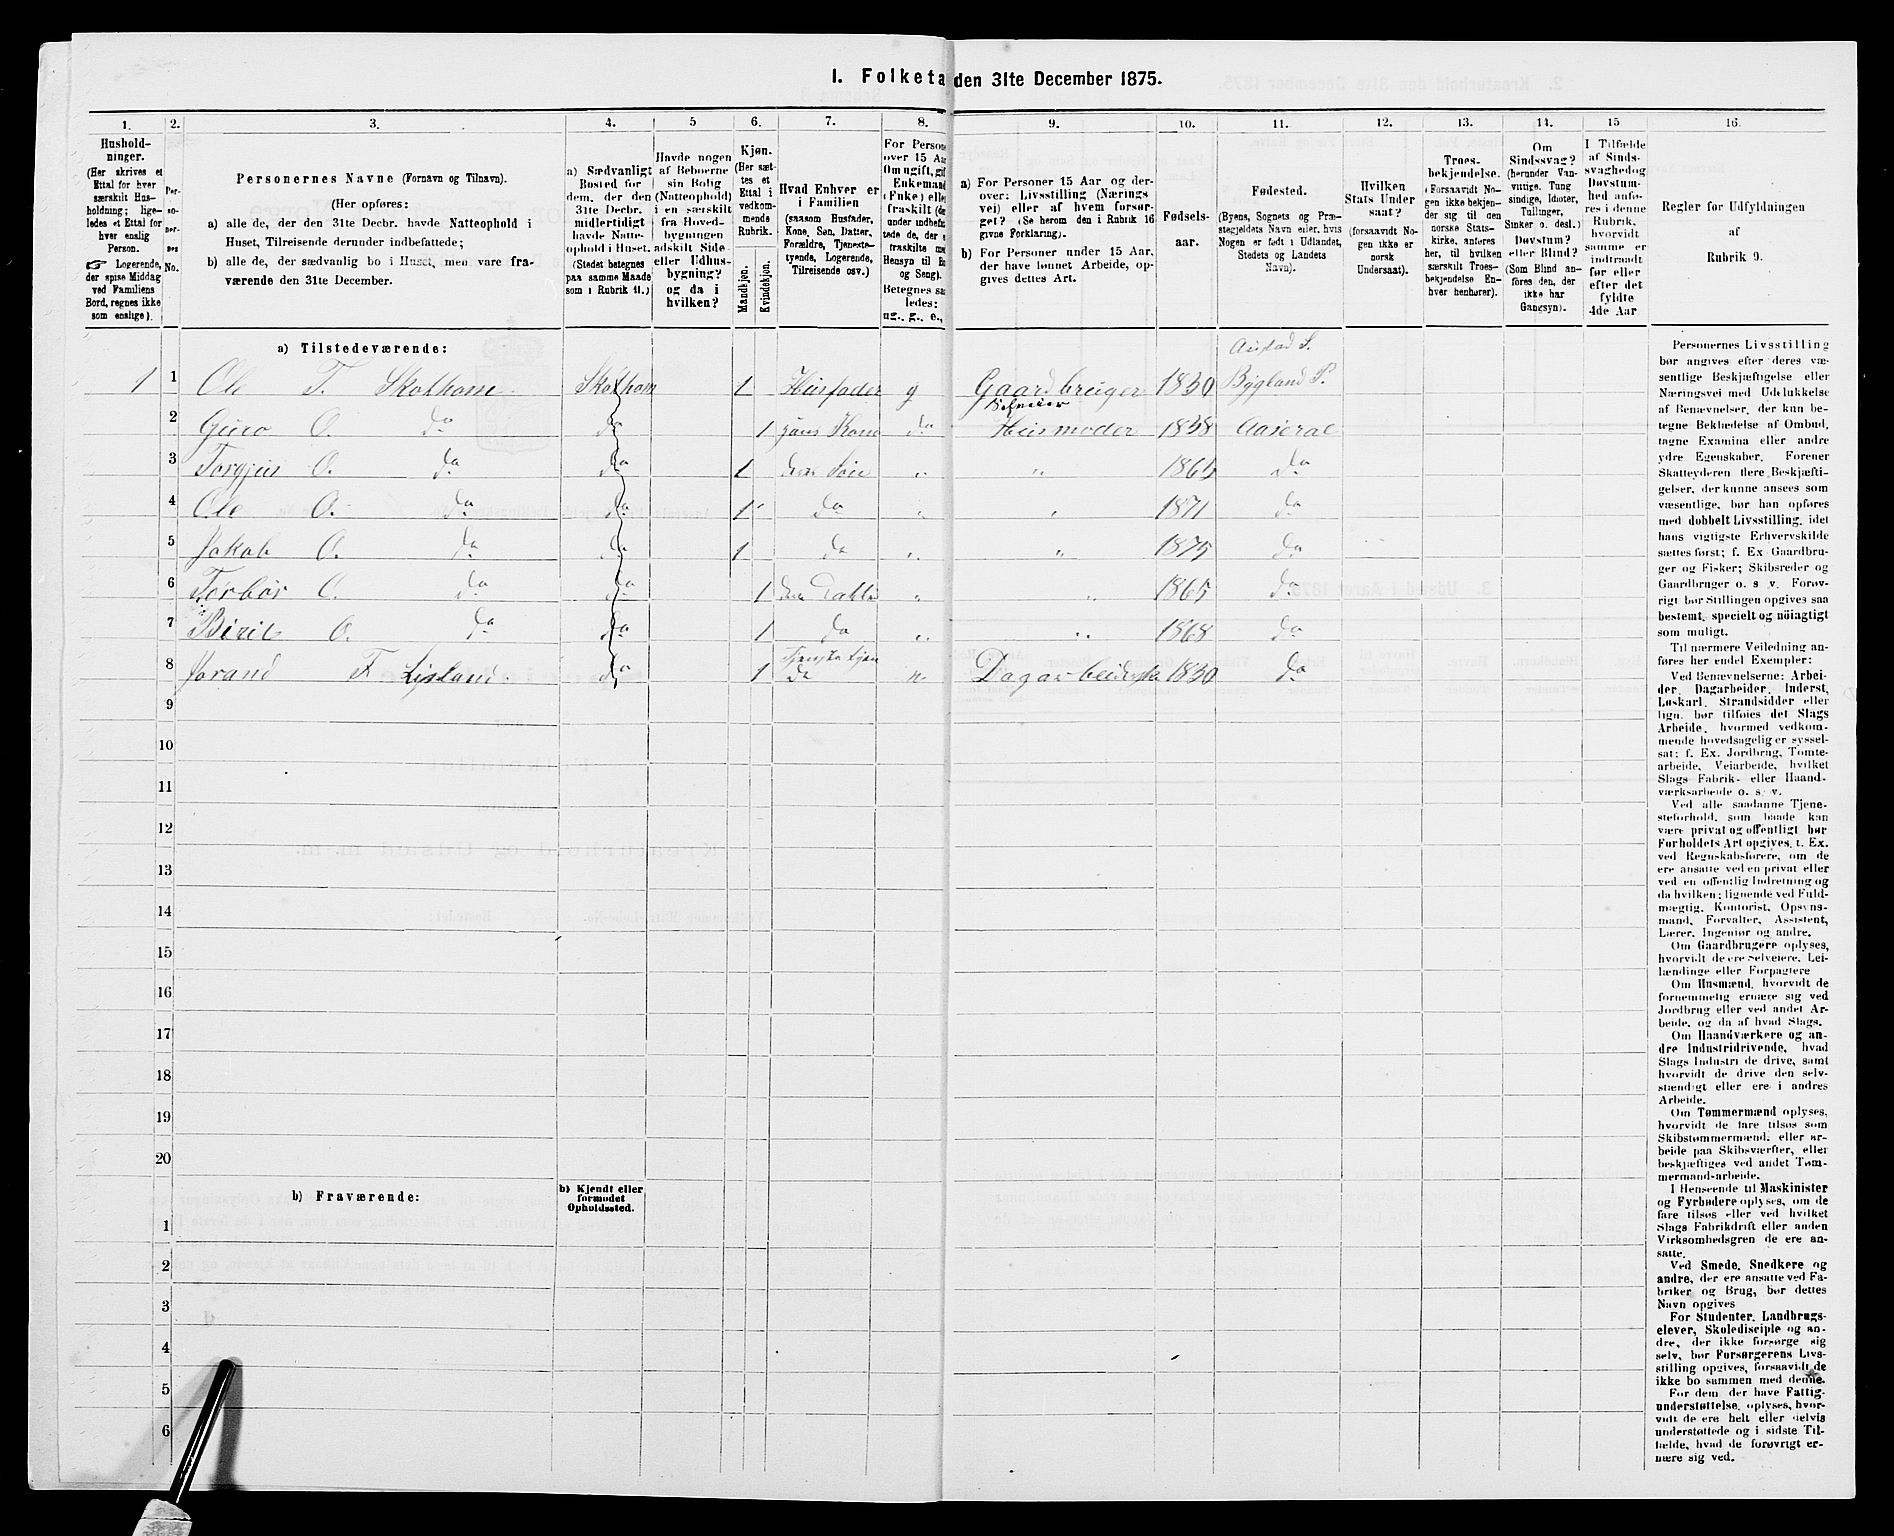 I. Folketa den 31te December 1875.
1. 2. 3. 4. 5 6. 7. 8. 9. 10. 11. 12. 13. 14. 15 16.
Hushold-
ninger.
(Her skrives et
Ettal for hver
særskilt Hus-
holdning; lige-
ledes et Ettal for
hver enslig
Person.
☞ Logerende,
der spise Middag
ved Familiens
Bord, regnes ikke
som enslige).
Per-
so-
ner-
nes
No.
Personernes Navne (Fornavn og Tilnavn).
(Her opføres:
a) alle de, der den 31te Decbr. havde Natteophold i
Huset, Tilreisende derunder indbefattede;
b) alle de, der sædvanlig bo i Huset, men vare fra-
værende den 31te December.
a) Sædvanligt
Bosted for
dem, der den
31te Decbr.
midlertidigt
havde Natte-
ophold i Huset.
(Stedet betegnes
paa samme Maade
som i Rubrik 11.)
Havde nogen
af Beboerne
sin Bolig
(Natteophold)
i en særskilt
fra Hoved-
bygningen
adskilt Side-
eller Udhus-
bygning?
og da i
hvilken?
Kjøn.
(Her sæt-
tes et
Ettal i
vedkom-
mende
Rubrik.
Mandkjøn.
Kvindekjøn.
Hvad Enhver er
i Familien
(saasom Husfader,
Kone, Søn, Datter,
Forældre, Tjeneste-
tyende, Logerende,
Tilreisende osv.)
For Persone
over 15 Aar
Om ugift, gif
Enkemand
(Enke) elle
fraskilt (de
under indbefat
tede de, der e
fraskilte me
Hensyn til Bo
og Seng).
Betegnes sa
ledes:
ug., g., e.,
a) For Personer 15 Aar og der-
over: Livsstilling (Nærings
vei) eller af hvem forsør-
get? (Se herom den i Rubrik 16
givne Forklaring).
b) For Personer under 15 Aar,
der have lønnet Arbeide, op-
gives dettes Art.
Fødsels-
aar.
Fødested.
(Byens, Sognets og Præ-
stegjeldets Navn eller, hvis
Nogen er født i Udlandet,
Stedets og Landets
Navn).
Hvilken
Stats Under
saat?
(forsaavidt No-
gen ikke er
norsk
Undersaat).
Troes-
bekjendelse.
(Forsaavidt No-
gen ikke bekjen-
der sig til den
norske Stats-
kirke, anføres
her, til hvilken
særskilt Troes-
bekjendelse En-
hver henhører).
Om
Sindssvag?
(herunder Van-
vittige, Tung
sindige, Idioter,
Tullinger,
Sinker o. desl.)
Døvstum?
eller Blind?
(Som Blind an-
føres den, der
ikke har
Gangsyn).
I Tilfælde
af Sinds-
svaghed og
Døvstum-
hed anfø-
res i denne
Rubrik,
hvorvidt
samme er
indtraadt
før eller
efter det
fyldte
4de Aar
Regler for Udfyldningen
af
Rubrik 9.
a) Tilstedeværende:
1 1 Ole T. Skolhom Skolhom 1 Husfader g Gaardbruger Selveier 1830 Austad S. Bygland P.
2 O. do do 1 hans Kone do Husmoder 1838 Aaseral
3 Torgjus O. do do 1 deres Søn „ „ do
4 Ole O. do do 1 do „ „ 1871 do
5 Jakob O. do do 1 do „ „ 1875 do
6 Torbør O. do do 1 „ „ 1865 do
7 Birit O. do do 1 do „ „ 1868 do
8 Jorand T. Lisland do 1 1830 do
9
10
11
12
13
14
15
16
17
18
19
20
b) Fraværende:
b) Kjendt eller
formodet
Opholdssted.
1
2
3
4
5
6
Personernes Livsstilling
bør angives efter deres væ-
sentlige Beskjæftigelse eller
Næringsvei med Udelukkelse
af Benævnelser, der kun be-
tegne Beklædelse af Ombud,
tagne Examina eller andre
ydre Egenskaber. Forener
Skatteyderen flere Beskjæfti-
gelser, der kunne ansees som
væsentlige, bør han opføres
med dobbelt Livsstilling, idet
hans vigtigste Erhvervskilde
sættes først; f. Ex Gaardbru-
ger og Fisker; Skibsreder og
Gaardbruger o. s v. Forøv-
rigt bør Stillingen opgives saa
bestemt, specielt og nöiagtigt
som muligt.
Til nærmere Veiledning an-
føres her endel Exempler:
Ved Benævnelserne: Arbei-
der, Dagarbeider, Inderst,
Løskarl, Strandsidder eller
lign. bør tilføies det Slags
Arbeide, hvormed vedkom-
mende hovedsagelig er syssel-
sat; f. Ex. Jordbrug, Tomte-
arbeide, Veiarbeide, hvilket
Slags Fabrik- eller Haand-
værksarbeide o. s. v.
Ved alle saadanne Tjene-
steforhold, som baade kan
være privat og offentligt bør
Forholdets Art opgives, t. Ex.
ved Regnskabsførere, om de
ere ansatte ved en privat eller
ved en offentlig Indretning og
da hvilken; lignende ved Fuld-
mægtig, Kontorist, Opsyns-
mand, Forvalter, Assistent,
Lærer, Ingeniør og andre.
Om Gaardbrugere oplyses,
hvorvidt de ere Selveiere, Lei-
lændinge eller Forpagtere
Om Husmænd, hvorvidt de
fornemmelig ernære sig ved
Jordbrug eller ved andet Ar-
beide, og da af hvad Slags.
Om Haandværkere og an-
dre Industridrivende, hvad
Slags Industri de drive, samt
hvorvidt de drive den selv-
stændigt eller ere i andres
Arbeide.
Om Tømmermænd oplyses,
hvorvidt de fare tilsøs som
Skibstømmermænd, eller ar-
beide paa Skibsværfter, eller
beskjæftiges ved andet Tøm-
mermand-arbeide.
I Henseende til Maskinister
og Fyrbødere oplyses, om de
fare tilsøs eller ved hvilket
Slags Fabrikdrift eller anden
Virksomhedsgren de ere an-
satte.
Ved Smede, Snedkere og
andre, der ere ansatte ved Fa-
briker og Brug, bør dettes
Navn opgives
For Studenter, Landbrugs-
elever, Skoledisciple og an-
dre, der ikke forsørge sig
selv, bør Forsørgerens Livs-
stilling opgives, forsaavidt de
ikke bo sammen med denne.
For dem, der have Fattig-
understøttelse, oplyses, hvor-
vidt de ere helt eller delvis
understøttede og i sidste Til-
fælde, hvad de forøvrigt er-
nære sig ved.